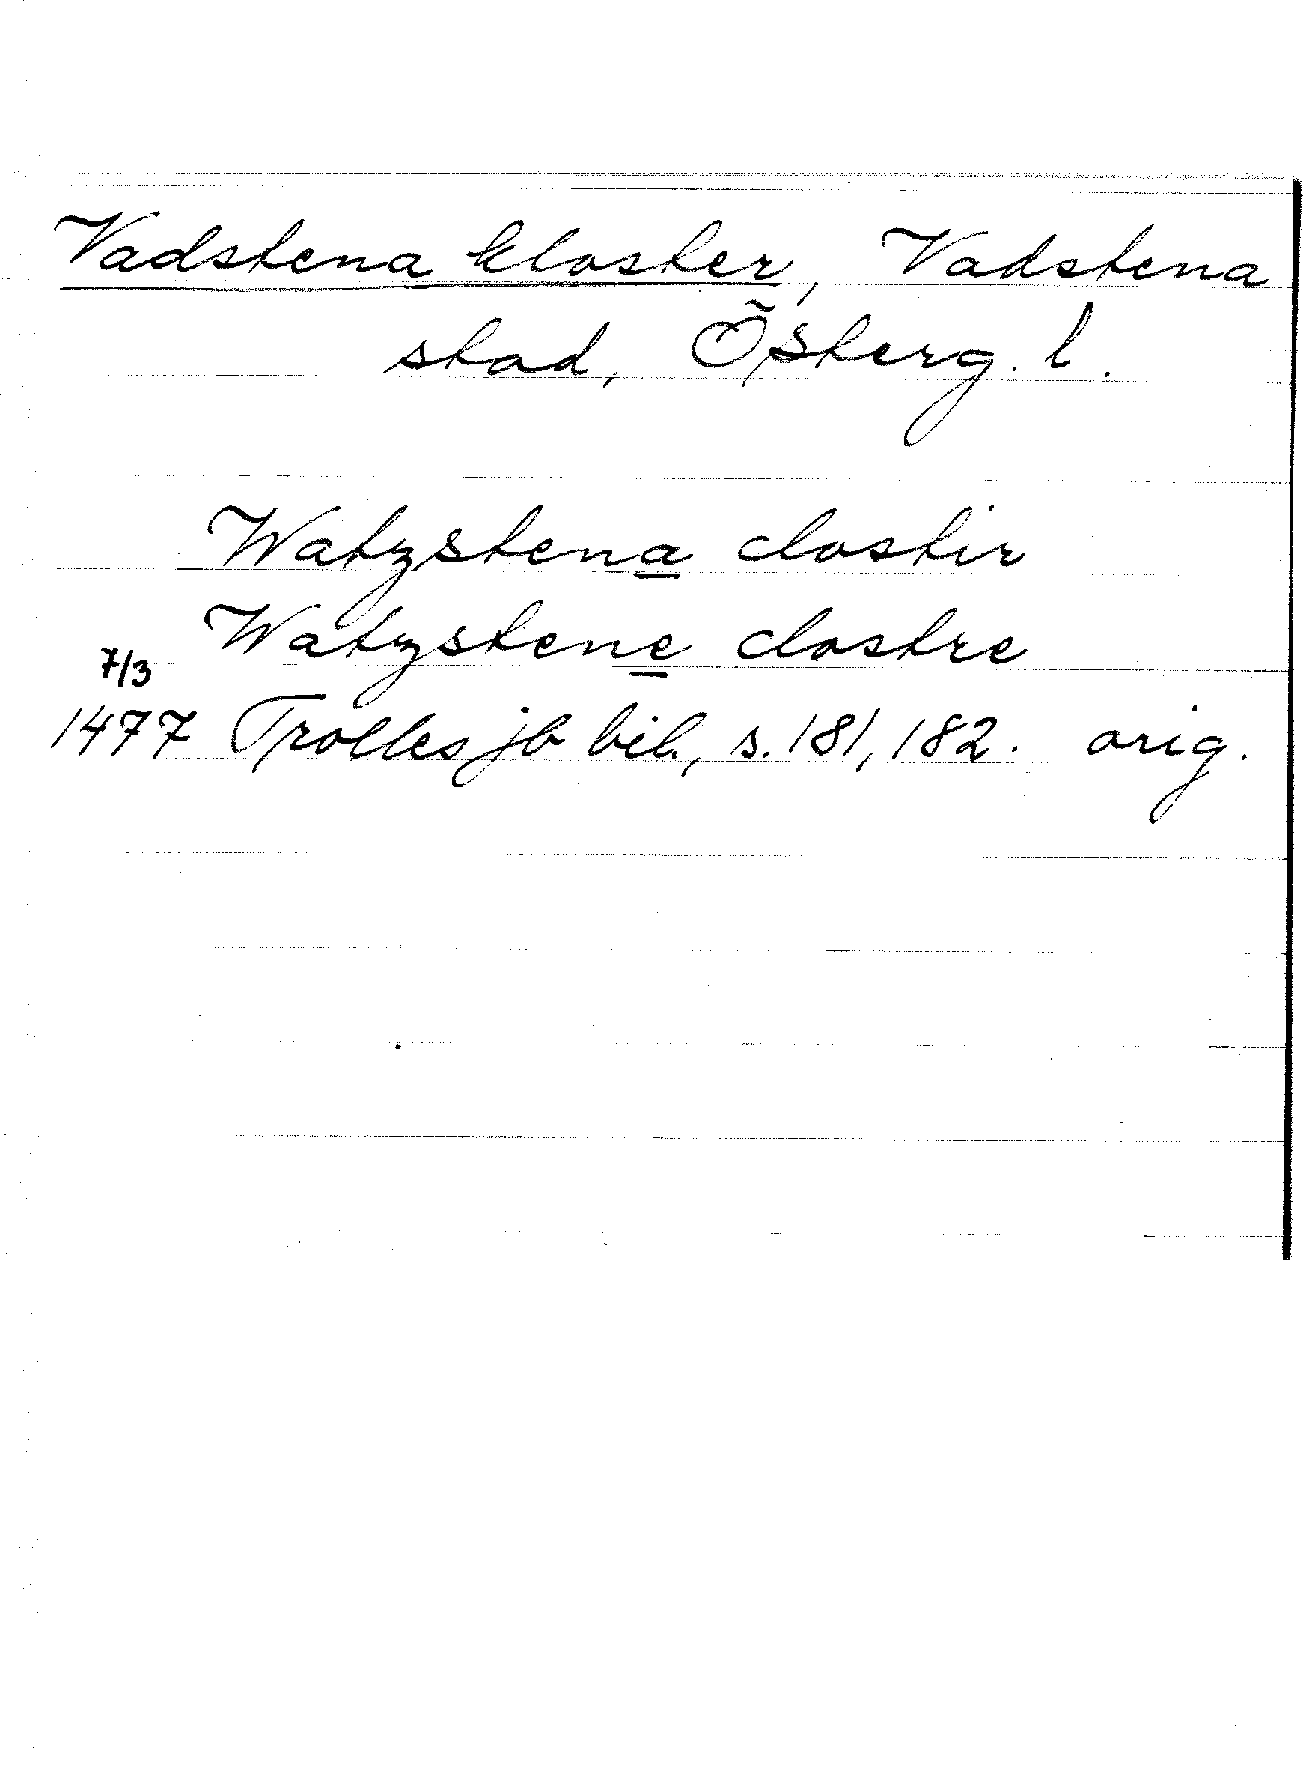 Vadstena kloster, Vadstena
stad, Österg. l.
Watzstena clostir
Watzstene clostre
7/3
1477 Trolles jb bil., s. 181, 182. orig.